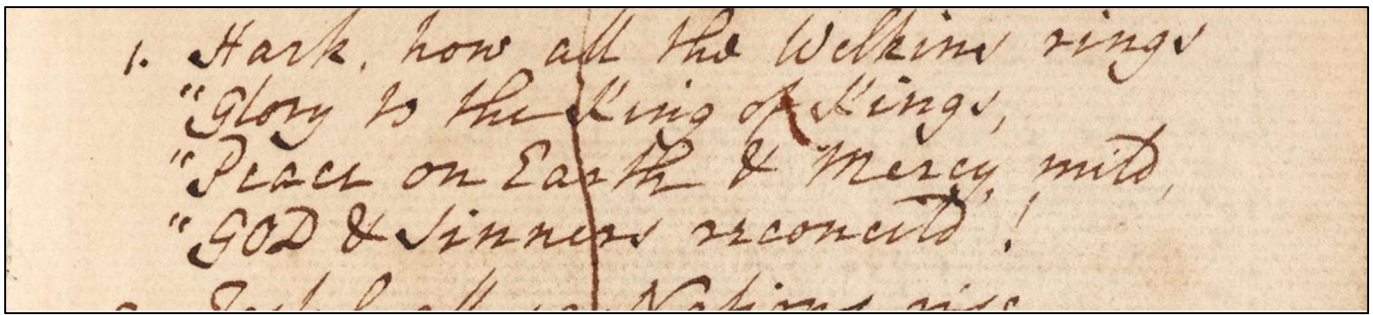 1. Hark, how all the Welkins rings
"Glory to the King of Kings,
"Peace on Earth & Mercy mild,
"GOD & Sinners reconcild!
all ye Nations rise